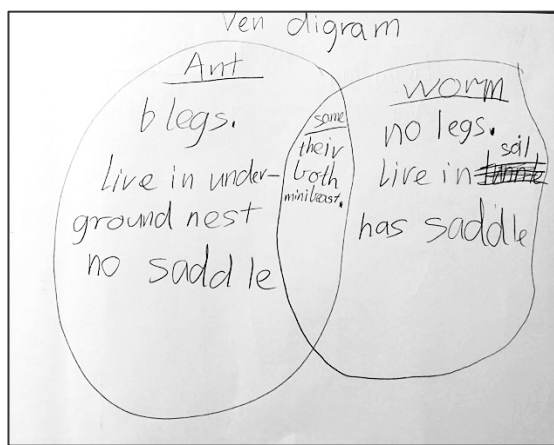 Ven digram
Ant
6 legs.
live in under-
ground nest
no saddle
same
their
both
minibeast.
worm
no legs.
soil
live in
has saddle